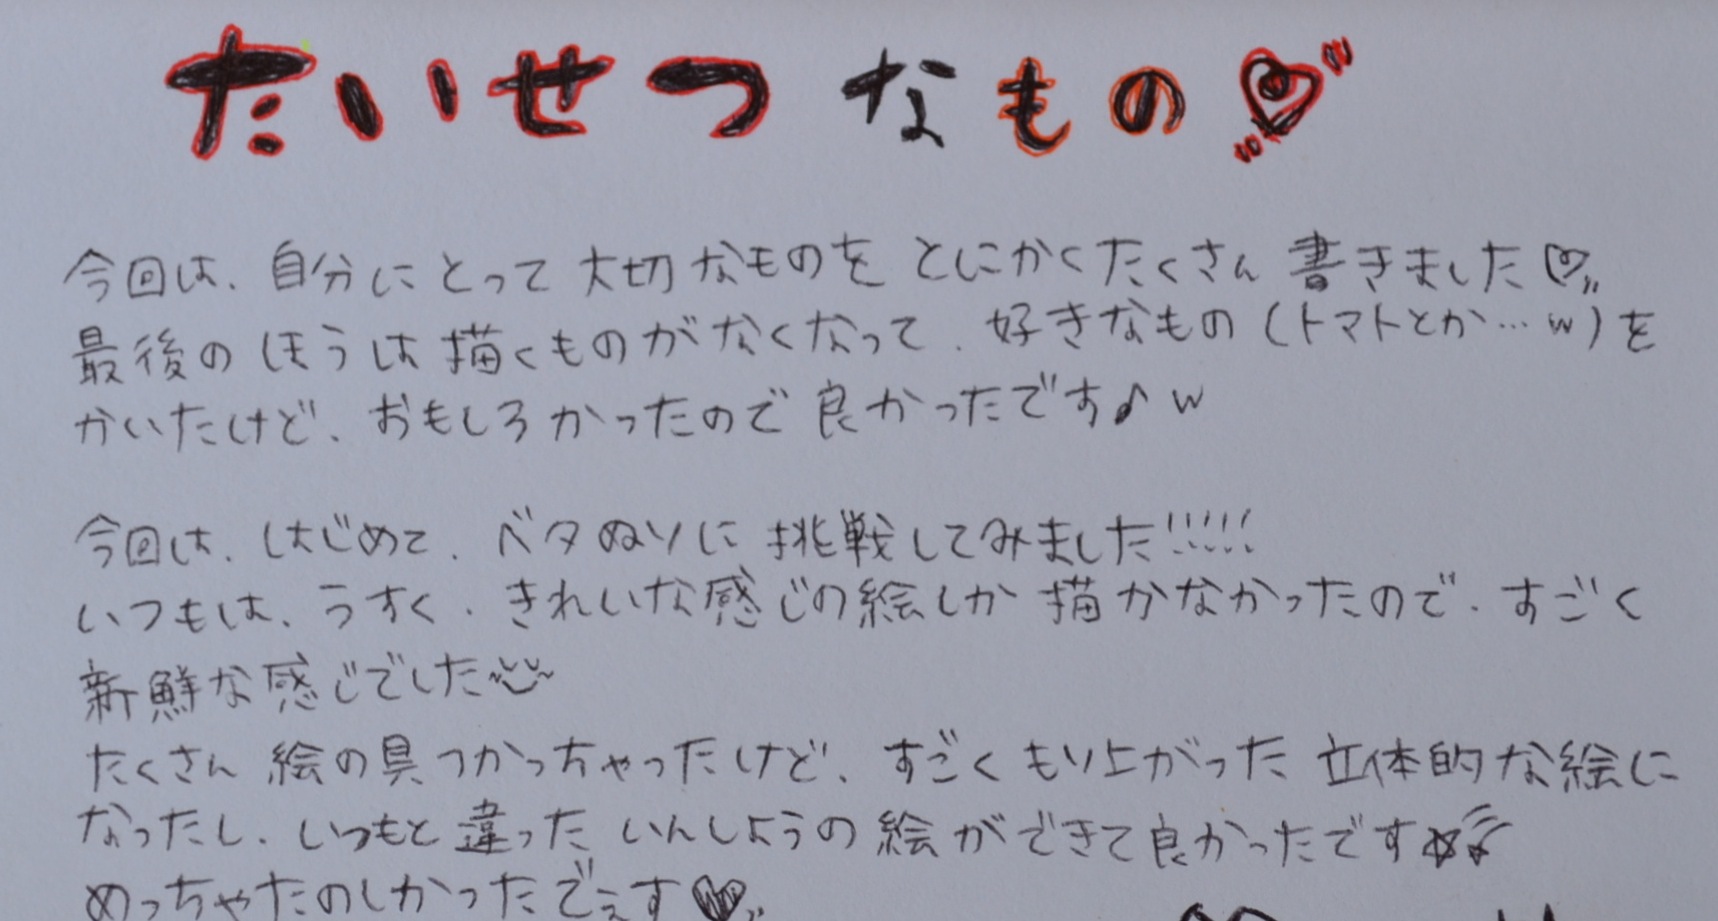 たいせつなもの♡
今回は、自分にとって大切なものをとにかくたくさん書きました♡
最後のほうは描くものがなくなって、好きなもの(トマトとか…w)を
かいたけど、おもしろかったので良かったです♪w
今回は、はじめて、ベタぬりに挑戦してみました!!!!!
いつもは、うすく、きれいな感じの絵しか描かなかったので、すごく
新鮮な感じでした
たくさん絵の具つかっちゃったけど、すごくもり上がった立体的な絵に
なったし、いつもと違ったいんしょうの絵ができて良かったです☆
めっちゃたのしかったでぇす♥